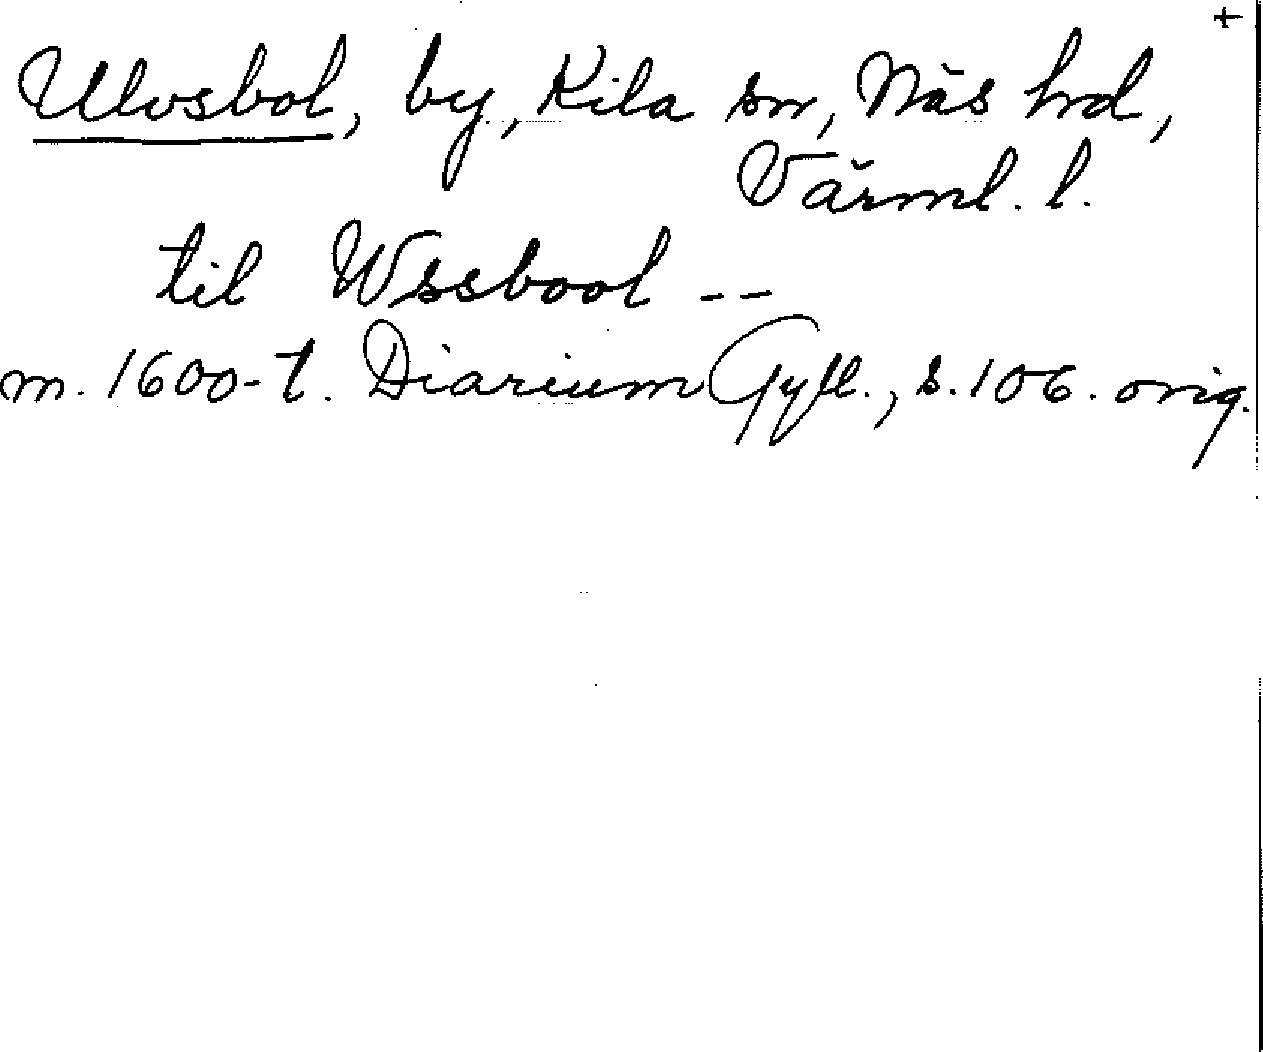 +
Ulvsbol, by, Kila sn, Näs hrd,
Värml. l.
til Wssbool --
m. 1600-t. Diarium Gyll., s. 106. orig.